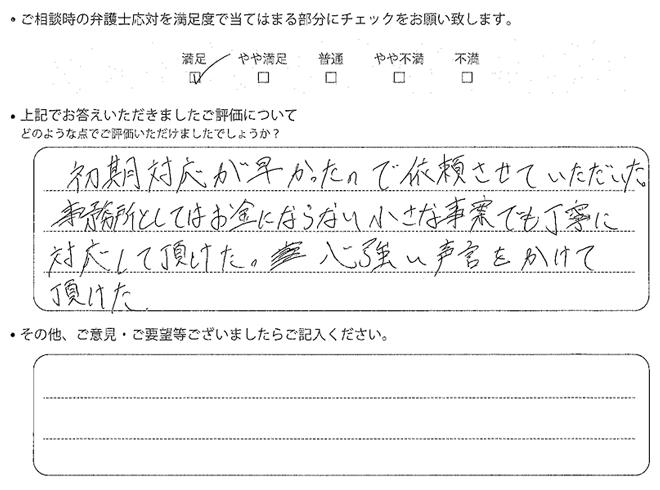 ・ご相談時の弁護士応対を満足度で当てはまる部分にチェックをお願い致します。
満足 やや満足 普通 やや不満 不満
・上記でお答えいただきましたご評価について
どのような点でご評価いただけましたでしょうか？
初期対応が早かったので依頼させていただいた。
事務所としてはお金にならない小さな事案でも丁寧に
対応して頂けた。心強い声言をかけて
頂けた
・その他、ご意見・ご要望等ございましたらご記入ください。